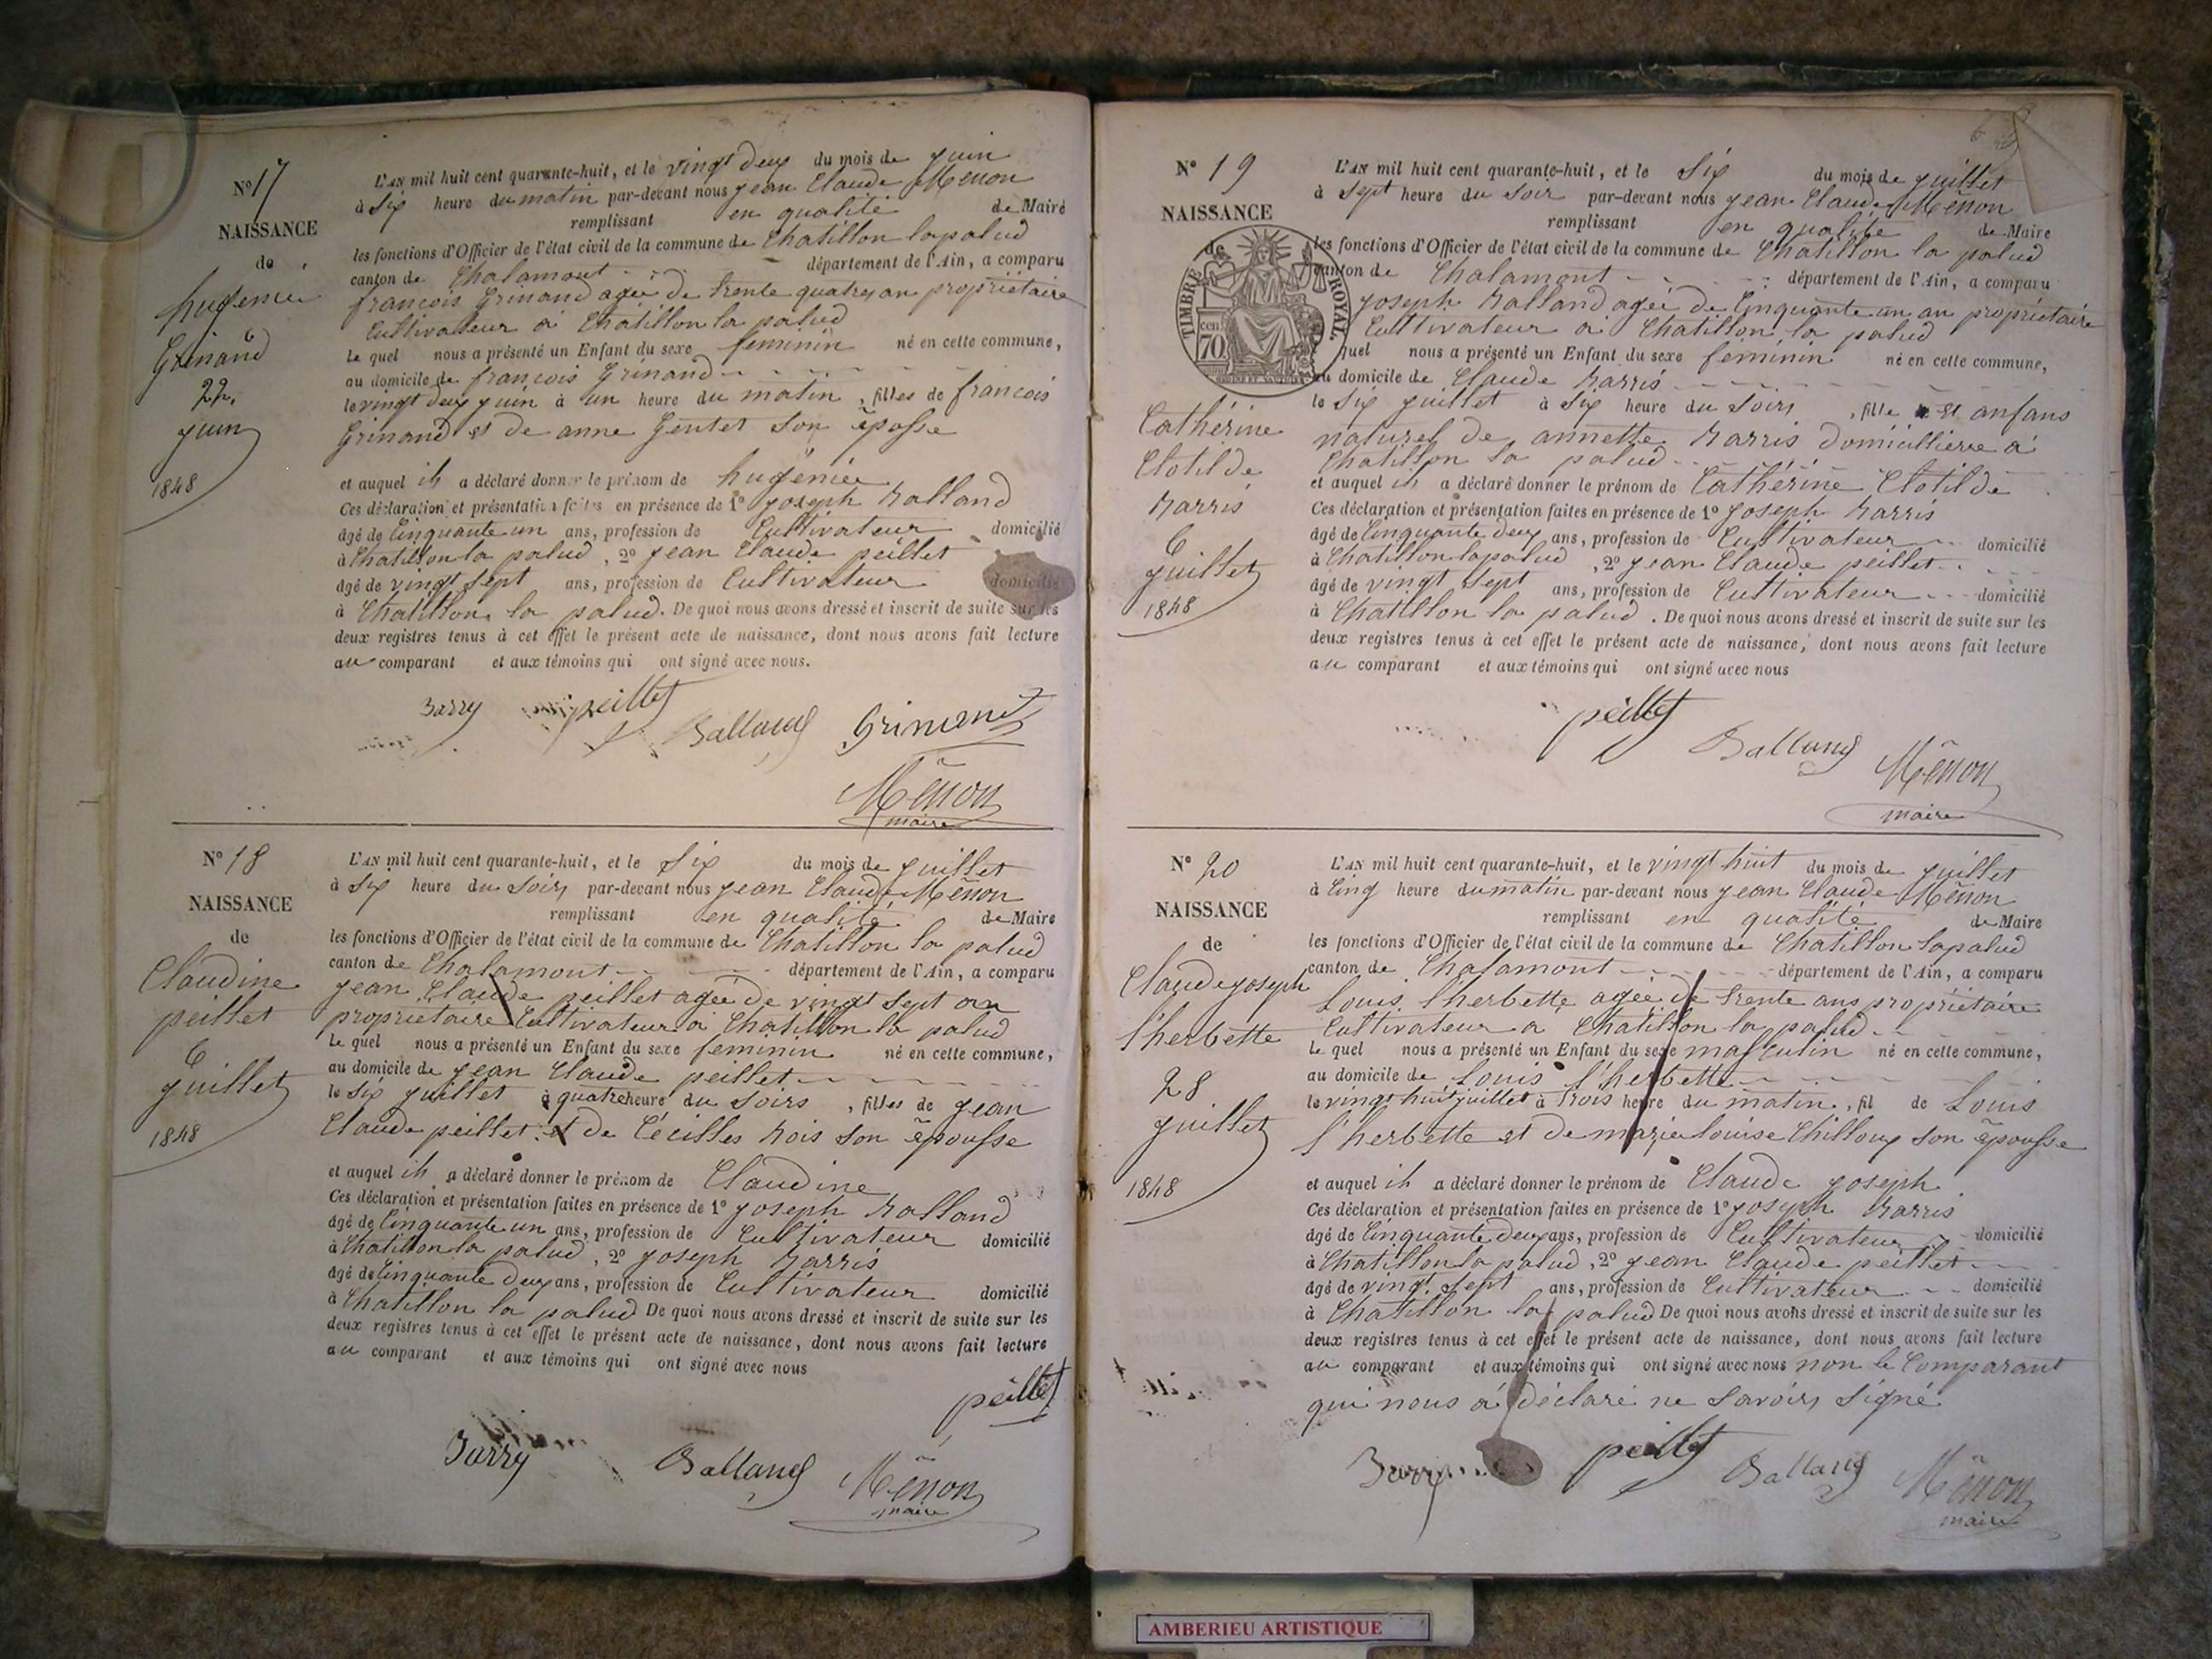 N° 17
NAISSANCE
de
hugenie
Grinand
22
juin
1848
L'AN mil huit cent quarante-huit, et le vingt deux du mois de juin
à six heure du matin par-devant nous jean Claude Mênon
remplissant en qualité de Maire
les fonctions d'Officier de l'état civil de la commune de Chatillon lapalud
canton de Chalamont département de l'Ain, a comparu
françois Grinand agée de trente quatres an propriétaire
Cultivateur à Chatillon la palud
Le quel nous a présenté un Enfant du sexe feminin né en cette commune,
au domicile de françois Grinand
le vingt deux juin à un heure du matin, filles de francois
Grinand et de anne Gentet son épousse
et auquel ih a déclaré donner le prénom de hugénie
Ces déclaration et présentation faites en présence de 1° joseph Balland
âgé de Cinquante un ans, profession de Cultivateur domicilié
à Chatillon la palud, 2° jean Claude peillet
âgé de vingt sept ans, profession de Cultivateur domicilié
à Chatillon la palud. De quoi nous avons dressé et inscrit de suite sur les
deux registres tenus à cet effet le présent acte de naissance, dont nous avons fait lecture
au comparant et aux témoins qui ont signé avec nous.
Barry peillet Balland Grinand
Mênon
maire
N° 18
NAISSANCE
de
Claudine
peillet
6
juillet
1848
L'AN mil huit cent quarante-huit, et le six du mois de juillet
à six heure du soirs par-devant nous jean Claude Mênon
remplissant en qualité de Maire
les fonctions d'Officier de l'état civil de la commune de Chatillon la palud
canton de Chalamont département de l'Ain, a comparu
jean Claude peillet agée de vingt sept an
propriétaire Cultivateur à Chatillon la palud
Le quel nous a présenté un Enfant du sexe feminin né en cette commune,
au domicile de jean Claude peillet
le six juillet à quatre heure du soirs, filles de jean
Claude peillet et de Cécilles Rois son épousse
et auquel ih a déclaré donner le prénom de Claudine
Ces déclaration et présentation faites en présence de 1° joseph Balland
âgé de Cinquante un ans, profession de Cultivateur domicilié
à Chatillon la palud, 2° joseph Barris
âgé de Cinquante deux ans, profession de Cultivateur domicilié
à Chatillon la palud De quoi nous avons dressé et inscrit de suite sur les
deux registres tenus à cet effet le présent acte de naissance, dont nous avons fait lecture
au comparant et aux témoins qui ont signé avec nous
peillet
Barry Balland Mênon
maire
N° 19
NAISSANCE
de
TIMBRE ROYAL
cen 70
Cathérine
Clotilde
Barris
6
juillet
1848
L'AN mil huit cent quarante-huit, et le six du mois de juillet
à sept heure du soir par-devant nous jean Claude Mênon
remplissant en qualité de Maire
les fonctions d'Officier de l'état civil de la commune de Chatillon la palud
canton de Chalamont département de l'Ain, a comparu
joseph Balland agée de Cinquante un an propriétaire
Cultivateur à Chatillon la palud
quel nous a présenté un Enfant du sexe feminin né en cette commune,
au domicile de Claude Barris
le six juillet à six heure du soirs, fille et anfans
naturel de annette Barris domicillière à
Chatillon la palud
et auquel ih a déclaré donner le prénom de Cathérine Clotilde
Ces déclaration et présentation faites en présence de 1° joseph Barris
âgé de Cinquante deux ans, profession de Cultivateur domicilié
à Chatillon lapalud, 2° jean Claude peillet
âgé de vingt sept ans, profession de Cultivateur domicilié
à Chatillon la palud. De quoi nous avons dressé et inscrit de suite sur les
deux registres tenus à cet effet le présent acte de naissance, dont nous avons fait lecture
au comparant et aux témoins qui ont signé avec nous
peillet
Balland
Mênon
maire
N° 20
NAISSANCE
de
Claude joseph
l'herbette
28
juillet
1848
L'AN mil huit cent quarante-huit, et le vingt huit du mois de juillet
à Cinq heure du matin par-devant nous jean Claude Mênon
remplissant en qualité de Maire
les fonctions d'Officier de l'état civil de la commune de Chatillon lapalud
canton de Chalamont département de l'Ain, a comparu
Louis l'herbette agée de trente ans propriétaire
Cultivateur a Chatillon la palud
Le quel nous a présenté un Enfant du sexe masculin né en cette commune,
au domicile de Louis l'herbette
le vingt huit juillet à trois heure du matin, fil de Louis
l'herbette et de marie louise Chilloux son épousse
et auquel ih a déclaré donner le prénom de Claude joseph
Ces déclaration et présentation faites en présence de 1° joseph Barris
âgé de Cinquante deux ans, profession de Cultivateur domicilié
à Chatillon la palud, 2° jean Claude peillet
âgé de vingt sept ans, profession de Cultivateur domicilié
à Chatillon la palud De quoi nous avons dressé et inscrit de suite sur les
deux registres tenus à cet effet le présent acte de naissance, dont nous avons fait lecture
au comparant et aux témoins qui ont signé avec nous non le Comparant
qui nous à déclaré ne savoirs signé
Barry peillet Balland Mênon
maire
AMBERIEU ARTISTIQUE